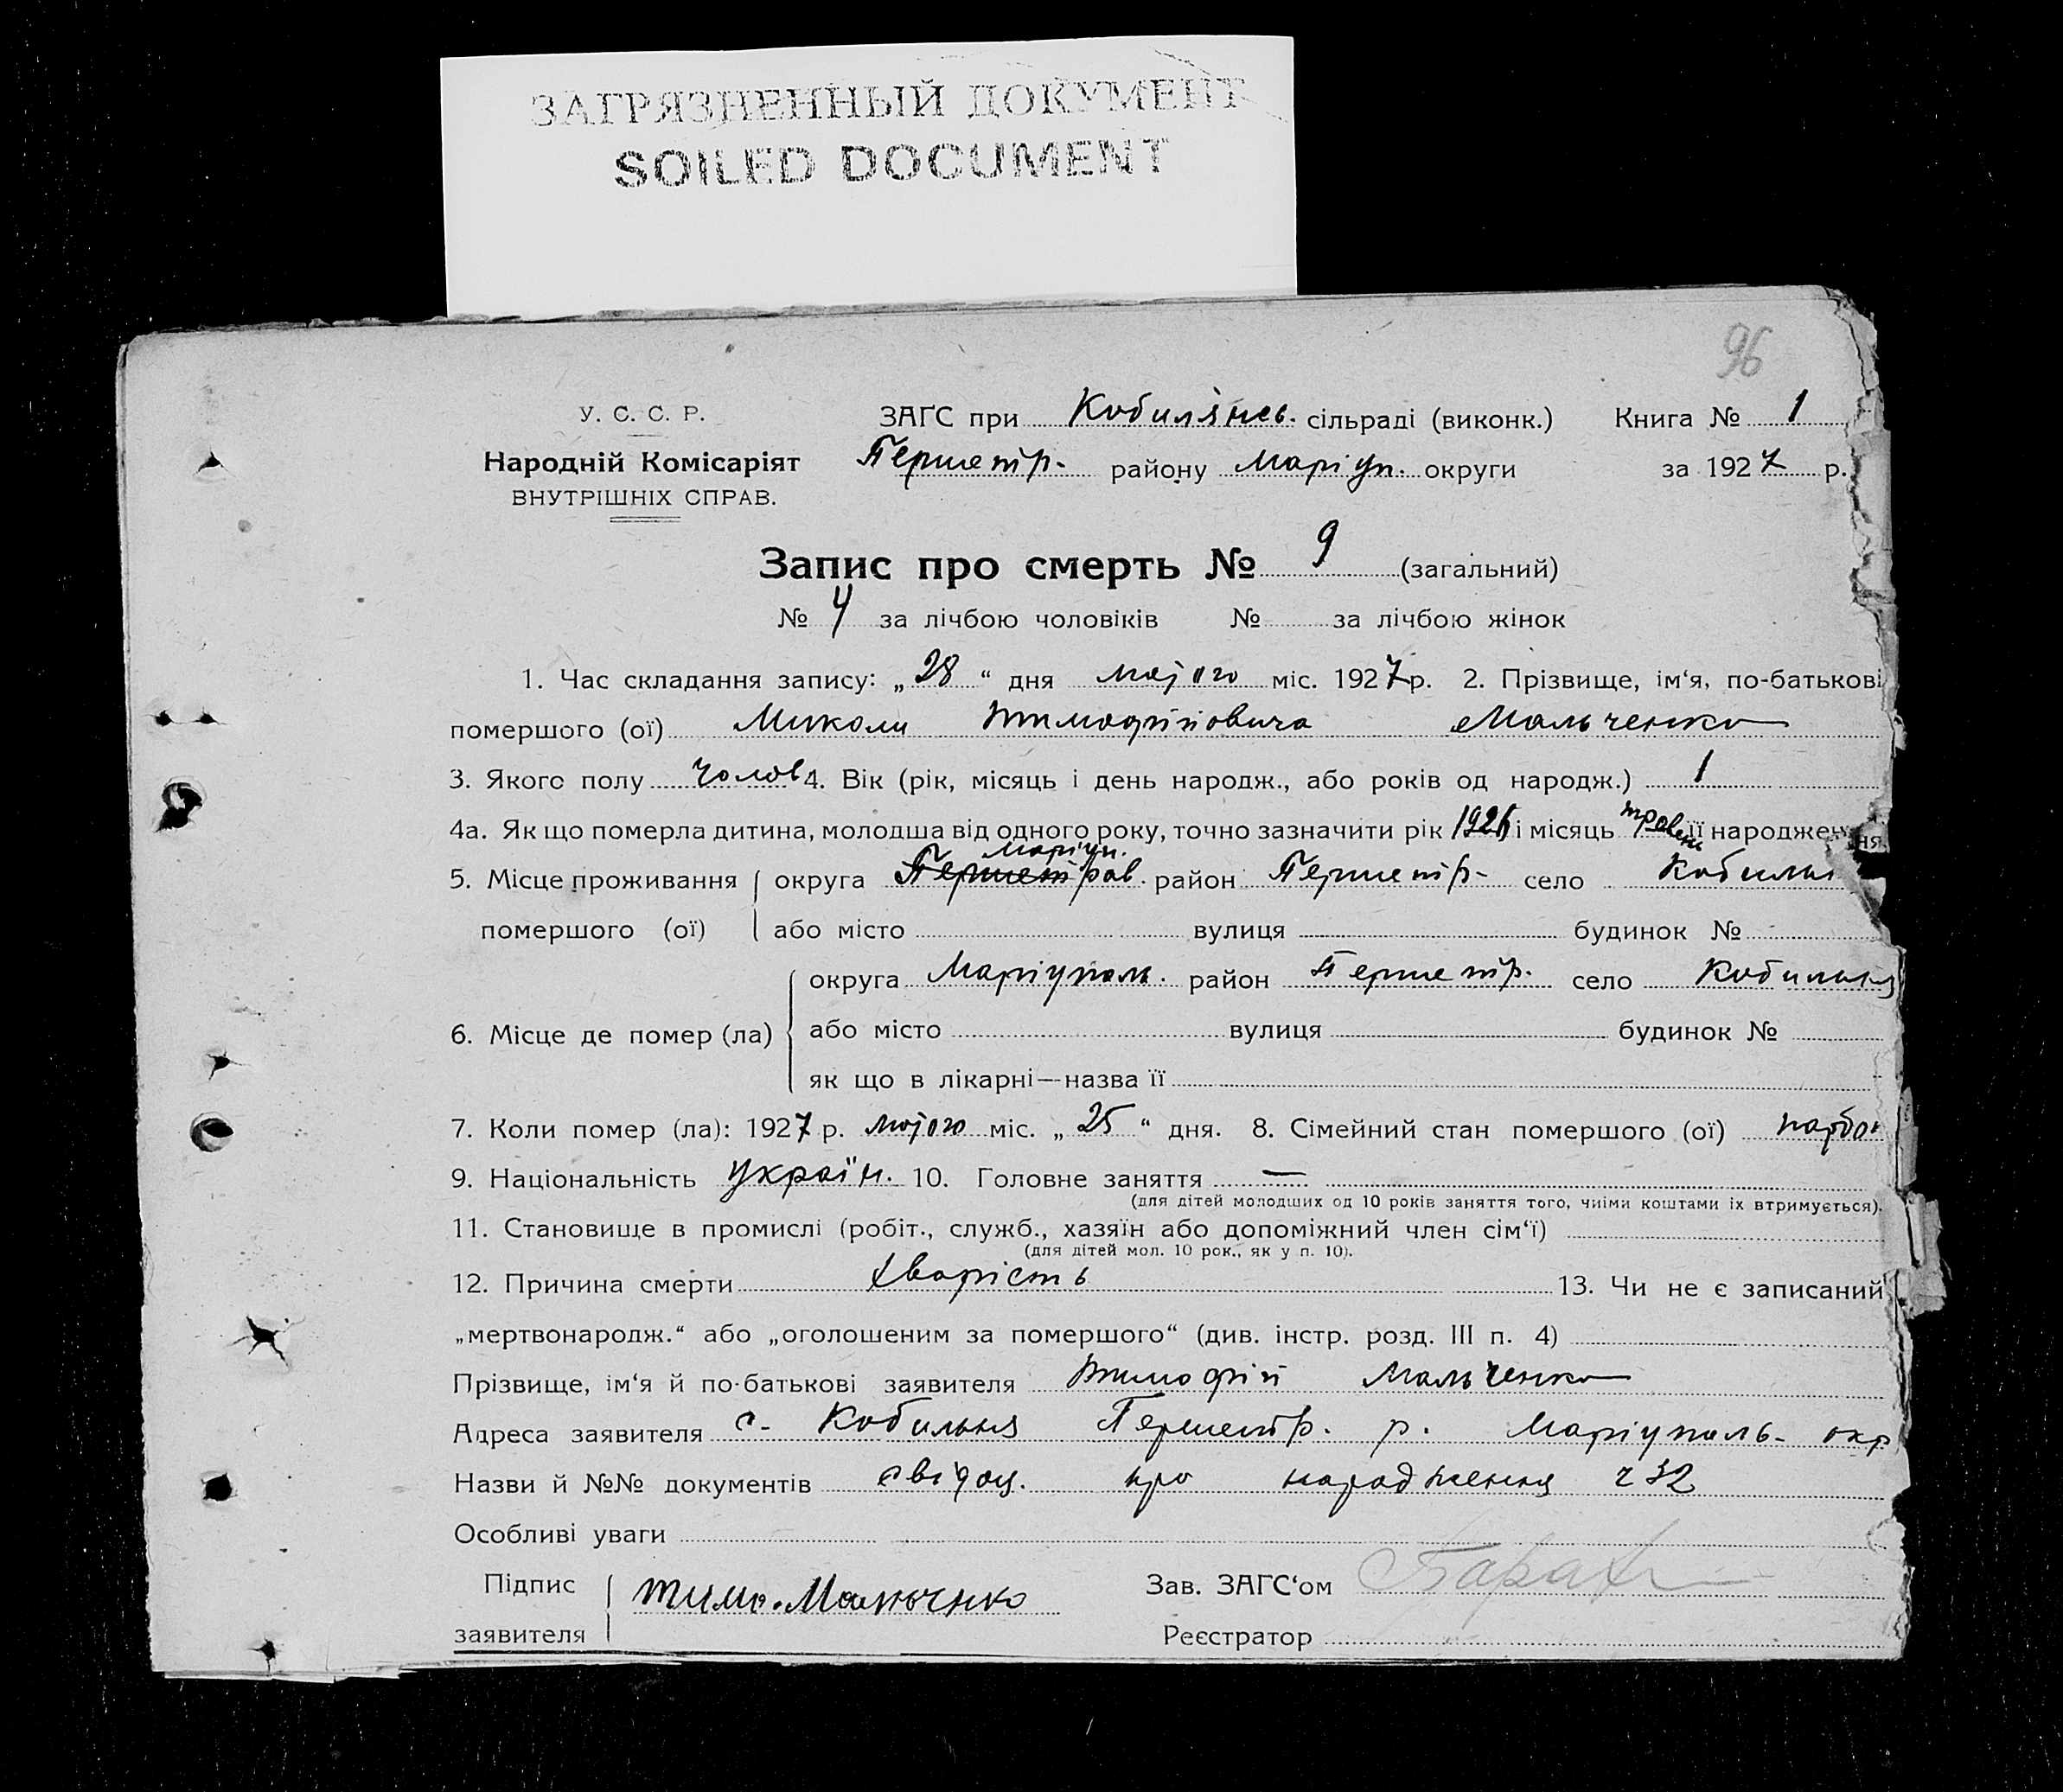 ЗАГРЯЗНЕННЫЙ ДОКУМЕНТ
SOILED DOCUMENT
96
У. С. С. Р.
Народній Комісаріят
ВНУТРІШНІХ СПРАВ.
ЗАҐС при Кобилянсь. сільраді (виконк.) Книга № 1
Першетр. району Маріуп. округи за 1927 р.
Запис про смерть № 9 (загальний)
№ 4 за лічбою чоловіків № за лічбою жінок
1. Час складання запису: „28“ дня мојого міс. 1927 р. 2. Прізвище, ім‘я, по-батькові
помершого (ої) Миколи Тимофійовича Мальченко
3. Якого полу чолов 4. Вік (рік, місяць і день народж., або років од народж.) 1
4а. Як що померла дитина, молодша від одного року, точно зазначити рік 1926 і місяць травень її народження
маріуп.
5. Місце проживання округа Першетрав. район Першетр. село Кобильн
помершого (ої) або місто вулиця будинок №
округа Маріуполь. район Першетр. село Кобильня
6. Місце де помер (ла) або місто вулиця будинок №
як що в лікарні—назва її
7. Коли помер (ла): 1927 р. мојого міс. „25“ дня. 8. Сімейний стан помершого (ої)
9. Національність україн. 10. Головне заняття —
(для дітей молодших од 10 років заняття того, чиїми коштами їх втримується).
11. Становище в промислі (робіт., служб., хазяїн або допоміжний член сім‘ї)
(для дітей мол. 10 рок., як у п. 10).
12. Причина смерти хварість 13. Чи не є записаний
„мертвонародж.“ або „оголошеним за помершого“ (див. інстр. розд. III п. 4)
Прізвище, ім‘я й по-батькові заявителя Тимофій Мальченко
Адреса заявителя с. Кобильня Першетр. р. Маріуполь. окр
Назви й №№ документів свідоц. про народження ч 32
Особливі уваги
Підпис
заявителя
тимо. Мальченко
Зав. ЗАҐС‘ом
Реєстратор